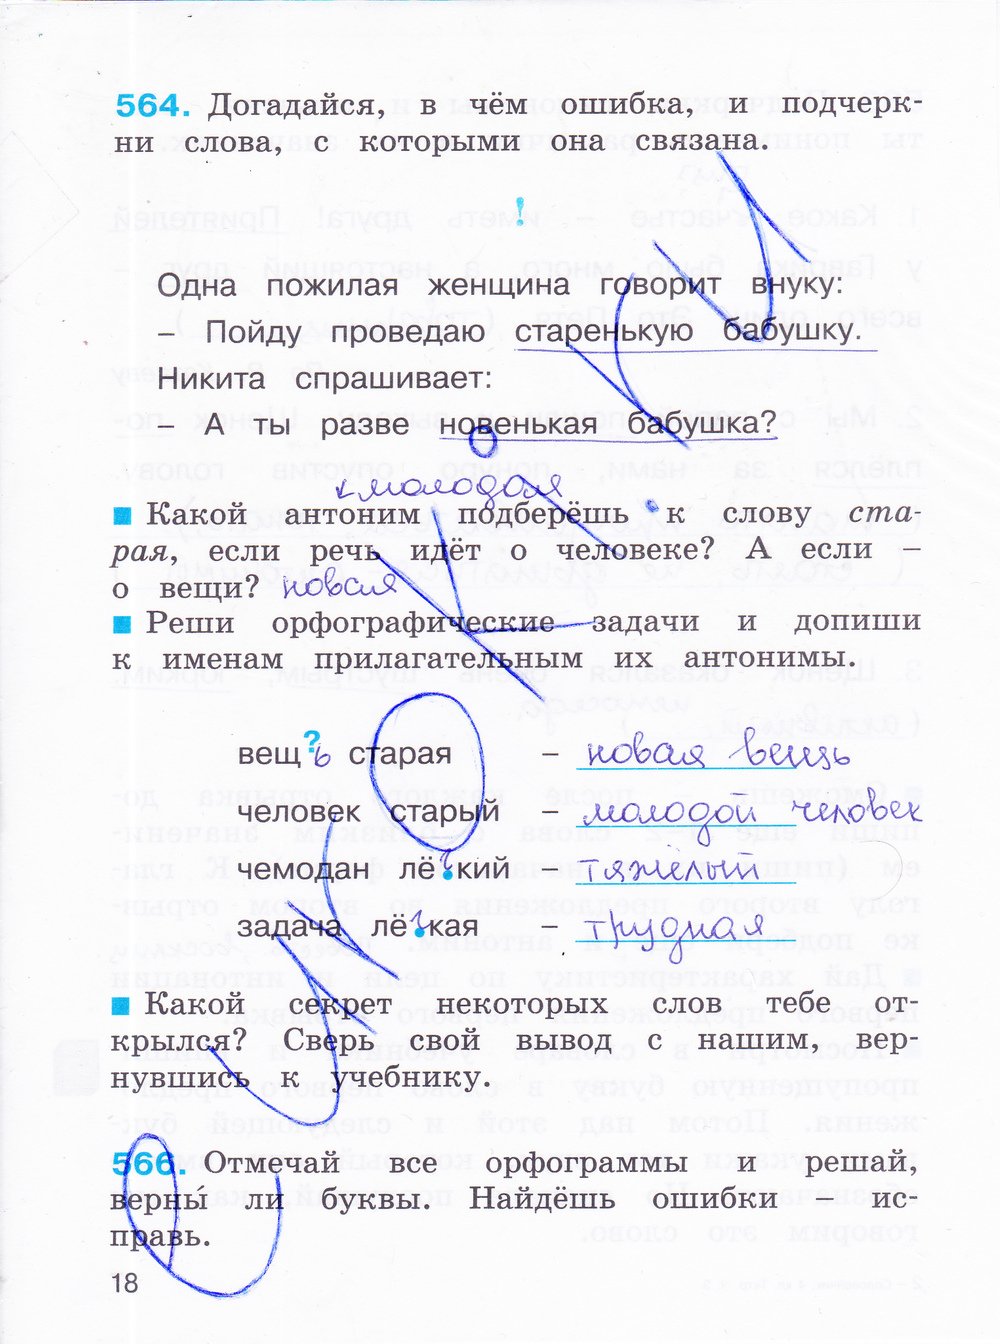 564. Догадайся, в чём ошибка, и подчерк-
ни слова, с которыми она связана.
!
Одна пожилая женщина говорит внуку:
– Пойду проведаю старенькую бабушку.
Никита спрашивает:
– А ты разве новенькая бабушка?
молодой
Какой антоним подберёшь к слову ста-
рая, если речь идёт о человеке? А если –
о вещи? новая
Реши орфографические задачи и допиши
к именам прилагательным их антонимы.
вещ?ь старая – новая вещь
человек старый – молодой человек
чемодан лё?гкий – тяжёлый
задача лёгкая – трудная
Какой секрет некоторых слов тебе от-
крылся? Сверь свой вывод с нашим, вер-
нувшись к учебнику.
566. Отмечай все орфограммы и решай,
верны́ ли буквы. Найдёшь ошибки – ис-
правь.
18